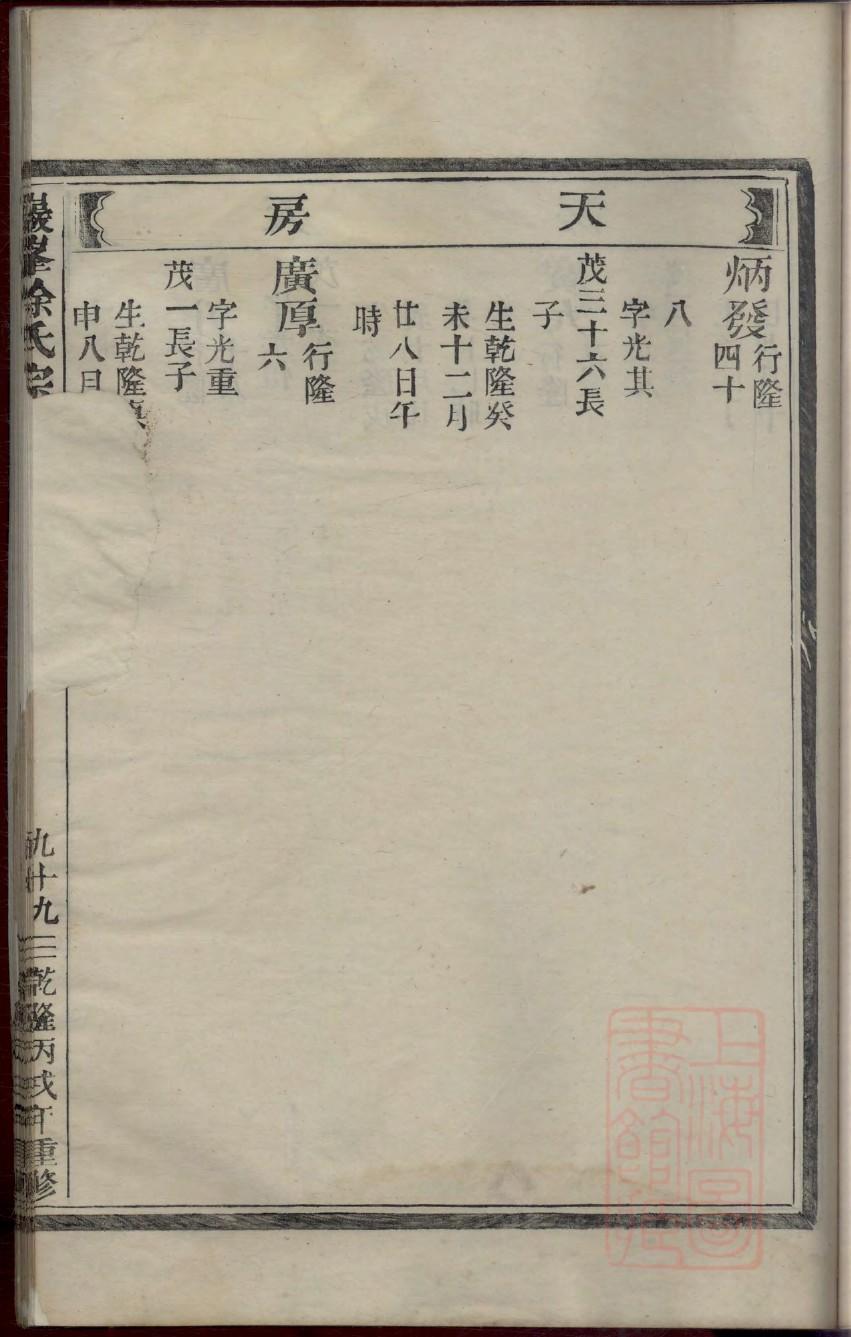 天房
炳發行隆
四十
八
字光其
茂三十六長
子
生乾隆癸
未十二月
廿八日午
時
廣厚行隆
六
字光重
茂一長子
生乾隆
申八日
巖峯徐氏宗
九十九
乾隆丙戌年重修
上海圖書館藏